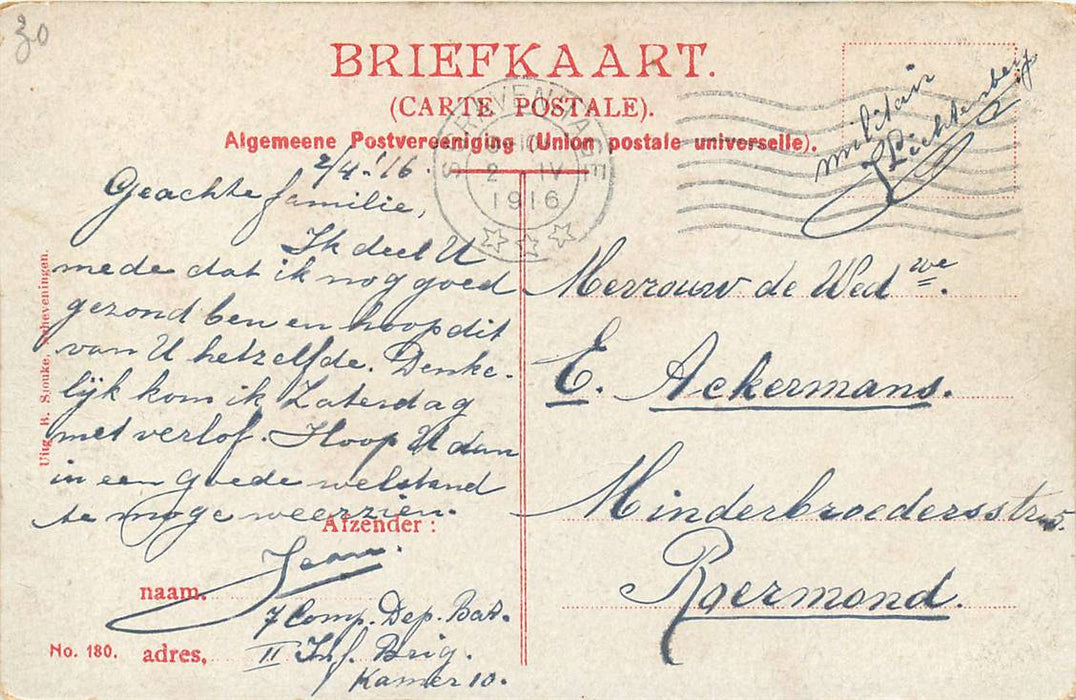 30
BRIEFKAART.
(CARTE POSTALE).
Algemeene Postvereeniging (Union postale universelle).
'S GRAVENHAGE
2 IV
1916
militair
J Lichtenberg
2/4.'16.
Geachte familie,
Ik deel U
mede dat ik nog goed
gezond ben en hoop dit
van U hetzelfde. Denke-
lijk kom ik Zaterdag
met verlof. Hoop U dan
in een goede welstand
te moge weerzien.
Afzender:
Jean.
naam.
7 Comp. Dep. Bat.
No. 180. adres. II Inf. Brig.
Kamer 10.
Mevrouw de Wed we.
E. Ackermans.
Minderbroedersstr 5.
Roermond.
Uitg. B. Sjouke, Scheveningen.